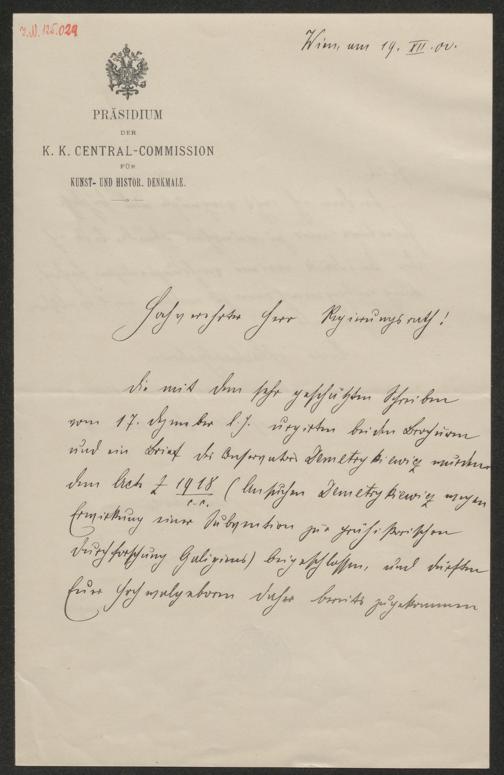 I.N. 125.029
Wien, am 19. XII. 00.
PRÄSIDIUM
DER
K. K. CENTRAL-COMMISSION
FÜR
KUNST- UND HISTOR. DENKMALE.
Hochverehrter Herr Regierungsrath!
Die mit dem sehr geschätzten Schreiben
vom 17. Dezember l. J. urgirten beiden Brochuren
und ein Brief des Conservators Demetrykiewicz wurden
dem Acte Z 1918 (Ansuchen Demetrykiewicz wegen
c.c.
Erwirkung einer Subvention zur prähistorischen
Durchforschung Galiziens) beigeschlossen, und dürften
Euer Hochwolgeboren daher bereits zugekommen